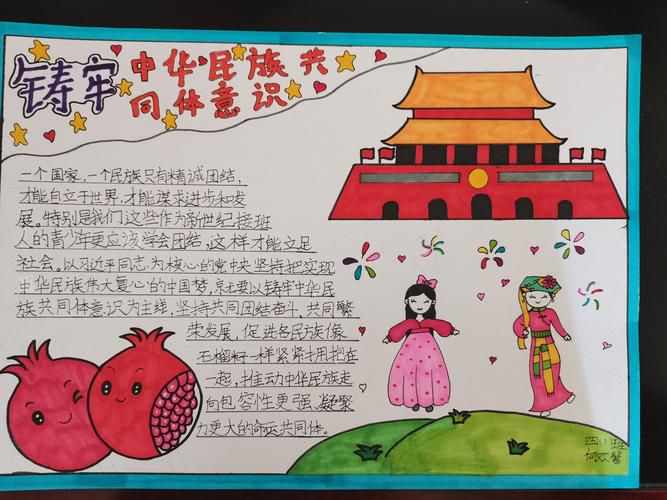 铸牢
中华民族共
同体意识
一个国家，一个民族只有精诚团结，
才能自立于世界，才能谋求进步和发
展。特别是我们这些作为新世纪接班
人的青少年更应该学会团结，这样才能立足
社会。以习近平同志为核心的党中央坚持把实现
中华民族伟大心的中国梦，就要以铸牢中华民
族共同体意识为主线，坚持共同团结奋斗、共同繁
荣发展，促进各民族像
石榴籽一样紧紧拥抱在
一起，推动中华民族走
向包容性更强、凝聚
力更大的命运共同体。
四(1)班
何欢馨